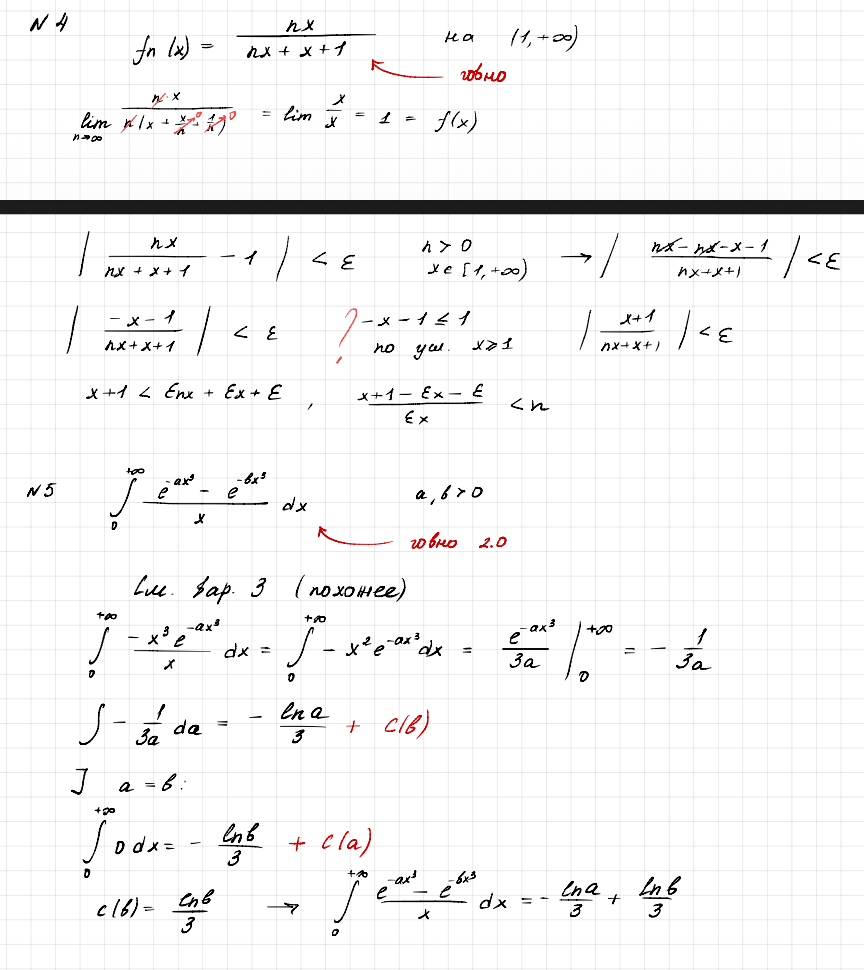 N 4
fn (x) = nx / (nx + x + 1) на (1, +∞)
говно
lim n→∞ n·x / n(x + x/n + 1/n) = lim x/x = 1 = f(x)
0 0
| nx / (nx + x + 1) - 1 | < ε n > 0 x ∈ [1, +∞) → | (nx - nx - x - 1) / (nx + x + 1) | < ε
| (-x - 1) / (nx + x + 1) | < ε ? -x - 1 ≤ 1 по усл. x ≥ 1 | (x + 1) / (nx + x + 1) | < ε
x + 1 < εnx + εx + ε , (x + 1 - εx - ε) / εx < n
N 5 ∫₀^{+∞} (e^{-ax³} - e^{-bx³}) / x dx a, b > 0
говно 2.0
См. вар. 3 (похожее)
∫₀^{+∞} (-x³ e^{-ax³}) / x dx = ∫₀^{+∞} - x² e^{-ax³} dx = e^{-ax³} / 3a |₀^{+∞} = - 1/3a
∫ - 1/3a da = - ln a / 3 + C(b)
] a = b:
∫₀^{+∞} 0 dx = - ln b / 3 + C(a)
c(b) = ln b / 3 → ∫₀^{+∞} (e^{-ax³} - e^{-bx³}) / x dx = - ln a / 3 + ln b / 3